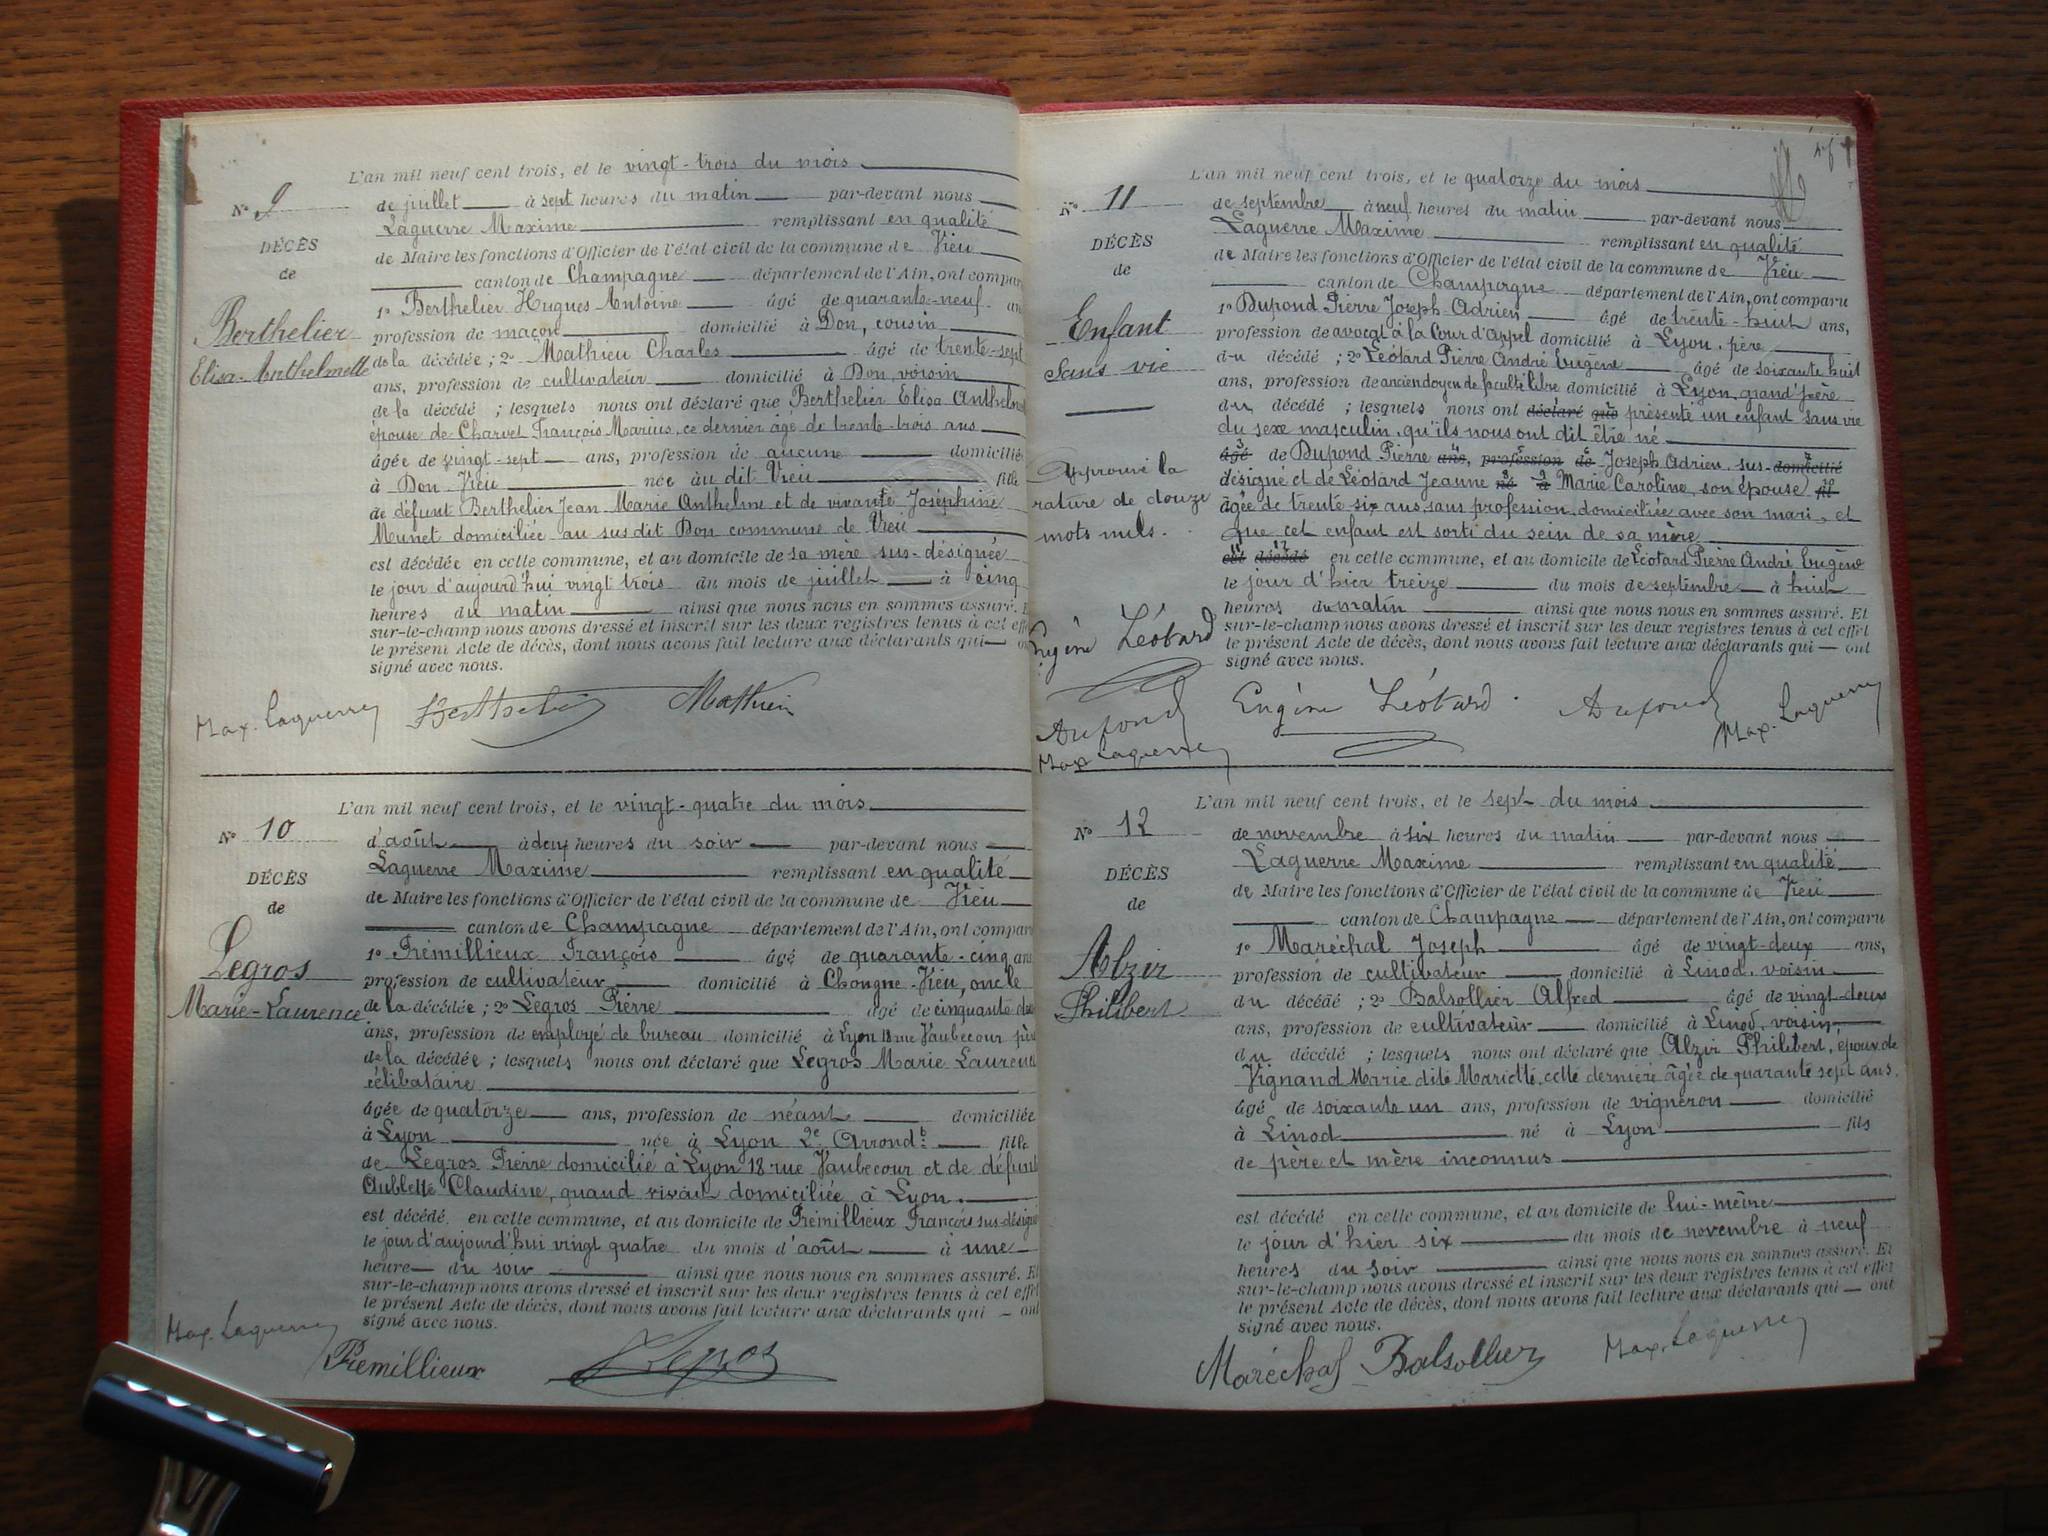 L'an mil neuf cent trois, et le vingt-trois du mois
N° 9
de juillet à sept heures du matin par-devant nous
Laguerre Maxime remplissant en qualité
DÉCÈS
de Maire les fonctions d'Officier de l'état civil de la commune de Vieu
de
canton de Champagne département de l'Ain, ont compar
1° Berthelier Hugues Antoine âgé de quarante-neuf an
Berthelier
profession de maçon domicilié à Don, cousin
Elisa-Anthelmette
de la décédée ; 2° Mathieu Charles âgé de trente-sept
ans, profession de cultivateur domicilié à Don, voisin
de la décédé ; lesquels nous ont déclaré que Berthelier Elisa Anthelm
épouse de Charvet François Marius, ce dernier âgé de trente-trois ans
âgée de vingt-sept ans, profession de aucune domicilié
à Don-Vieu née au dit Vieu fille
de défunt Berthelier Jean-Marie Anthelme et de vivante Joséphine
Munet domiciliée au sus dit Don commune de Vieu
est décédée en cette commune, et au domicile de sa mère sus-désignée
le jour d'aujourd'hui vingt trois du mois de juillet à cinq
heures du matin ainsi que nous nous en sommes assuré. E
sur-le-champ nous avons dressé et inscrit sur les deux registres tenus à cet eff
le présent Acte de décès, dont nous avons fait lecture aux déclarants qui on
signé avec nous.
Max. Laguerre Berthelier Mathieu
L'an mil neuf cent trois, et le vingt-quatre du mois
N° 10
d'août à deux heures du soir par-devant nous
Laguerre Maxime remplissant en qualité
DÉCÈS
de Maire les fonctions d'Officier de l'état civil de la commune de Vieu
de
canton de Champagne département de l'Ain, ont compar
1° Prémillieux François âgé de quarante-cinq ans
Legros
profession de cultivateur domicilié à Chongne-Vieu, oncle
Marie-Laurence
de la décédée ; 2° Legros Pierre âgé de cinquante deu
ans, profession de employé de bureau domicilié à Lyon 18 rue Vaubecour pèr
de la décédée ; lesquels nous ont déclaré que Legros Marie Laurenc
célibataire
âgée de quatorze ans, profession de néant domiciliée
à Lyon née à Lyon 2e Arrondt fille
de Legros Pierre domicilié à Lyon 18 rue Vaubecour et de défunt
Aublette Claudine, quand vivait domiciliée à Lyon.
est décédé en cette commune, et au domicile de Prémillieux François sus-désign
le jour d'aujourd'hui vingt quatre du mois d'août à une
heure du soir ainsi que nous nous en sommes assuré. E
sur-le-champ nous avons dressé et inscrit sur les deux registres tenus à cet effet
le présent Acte de décès, dont nous avons fait lecture aux déclarants qui ont
signé avec nous.
Max. Laguerre
Premillieux Legros
L'an mil neuf cent trois, et le quatorze du mois
N° 11
de septembre à neuf heures du matin par-devant nous
Laguerre Maxime remplissant en qualité
DÉCÈS
de Maire les fonctions d'Officier de l'état civil de la commune de Vieu
de
canton de Champagne département de l'Ain, ont comparu
1° Dupond Pierre Joseph Adrien âgé de trente-huit ans,
Enfant
profession de avocat à la Cour d'Appel domicilié à Lyon, père
Sans vie
du décédé ; 2° Léotard Pierre André Eugène âgé de soixante huit
ans, profession de ancien doyen de faculté libre domicilié à Lyon, grand'père
du décédé ; lesquels nous ont déclaré que présenté un enfant sans vie
du sexe masculin, qu'ils nous ont dit être né
âgé de Dupond Pierre ans, profession de Joseph Adrien, sus-domicilié
Approuvé la
désigné et de Léotard Jeanne né à Marie Caroline, son épouse fil
rature de douze
âgée de trente six ans sans profession domiciliée avec son mari, et
mots nuls.
que cet enfant est sorti du sein de sa mère
est décédé en cette commune, et au domicile de Léotard Pierre André Eugène
le jour d'hier treize du mois de septembre à huit
heures du matin ainsi que nous nous en sommes assuré. Et
sur-le-champ nous avons dressé et inscrit sur les deux registres tenus à cet effet
Eugène Léotard
le présent Acte de décès, dont nous avons fait lecture aux déclarants qui ont
signé avec nous.
Dupond Eugène Léotard. Dupond Max. Laguerre
Max Laguerre
L'an mil neuf cent trois, et le sept du mois
N° 12
de novembre à six heures du matin par-devant nous
Laguerre Maxime remplissant en qualité
DÉCÈS
de Maire les fonctions d'Officier de l'état civil de la commune de Vieu
de
canton de Champagne département de l'Ain, ont comparu
1° Maréchal Joseph âgé de vingt-deux ans,
Alzir
profession de cultivateur domicilié à Linod, voisin
Philibert
du décédé ; 2° Balsollier Alfred âgé de vingt-deux
ans, profession de cultivateur domicilié à Linod, voisin,
du décédé ; lesquels nous ont déclaré que Alzir Philibert, époux de
Vignand Marie dite Mariette, cette dernière âgée de quarante sept ans.
âgé de soixante un ans, profession de vigneron domicilié
à Linod né à Lyon fils
de père et mère inconnus
est décédé en cette commune, et au domicile de lui-même
le jour d'hier six du mois de novembre à neuf
heures du soir ainsi que nous nous en sommes assuré. Et
sur-le-champ nous avons dressé et inscrit sur les deux registres tenus à cet effet
le présent Acte de décès, dont nous avons fait lecture aux déclarants qui ont
signé avec nous.
Maréchal Balsollier Max. Laguerre